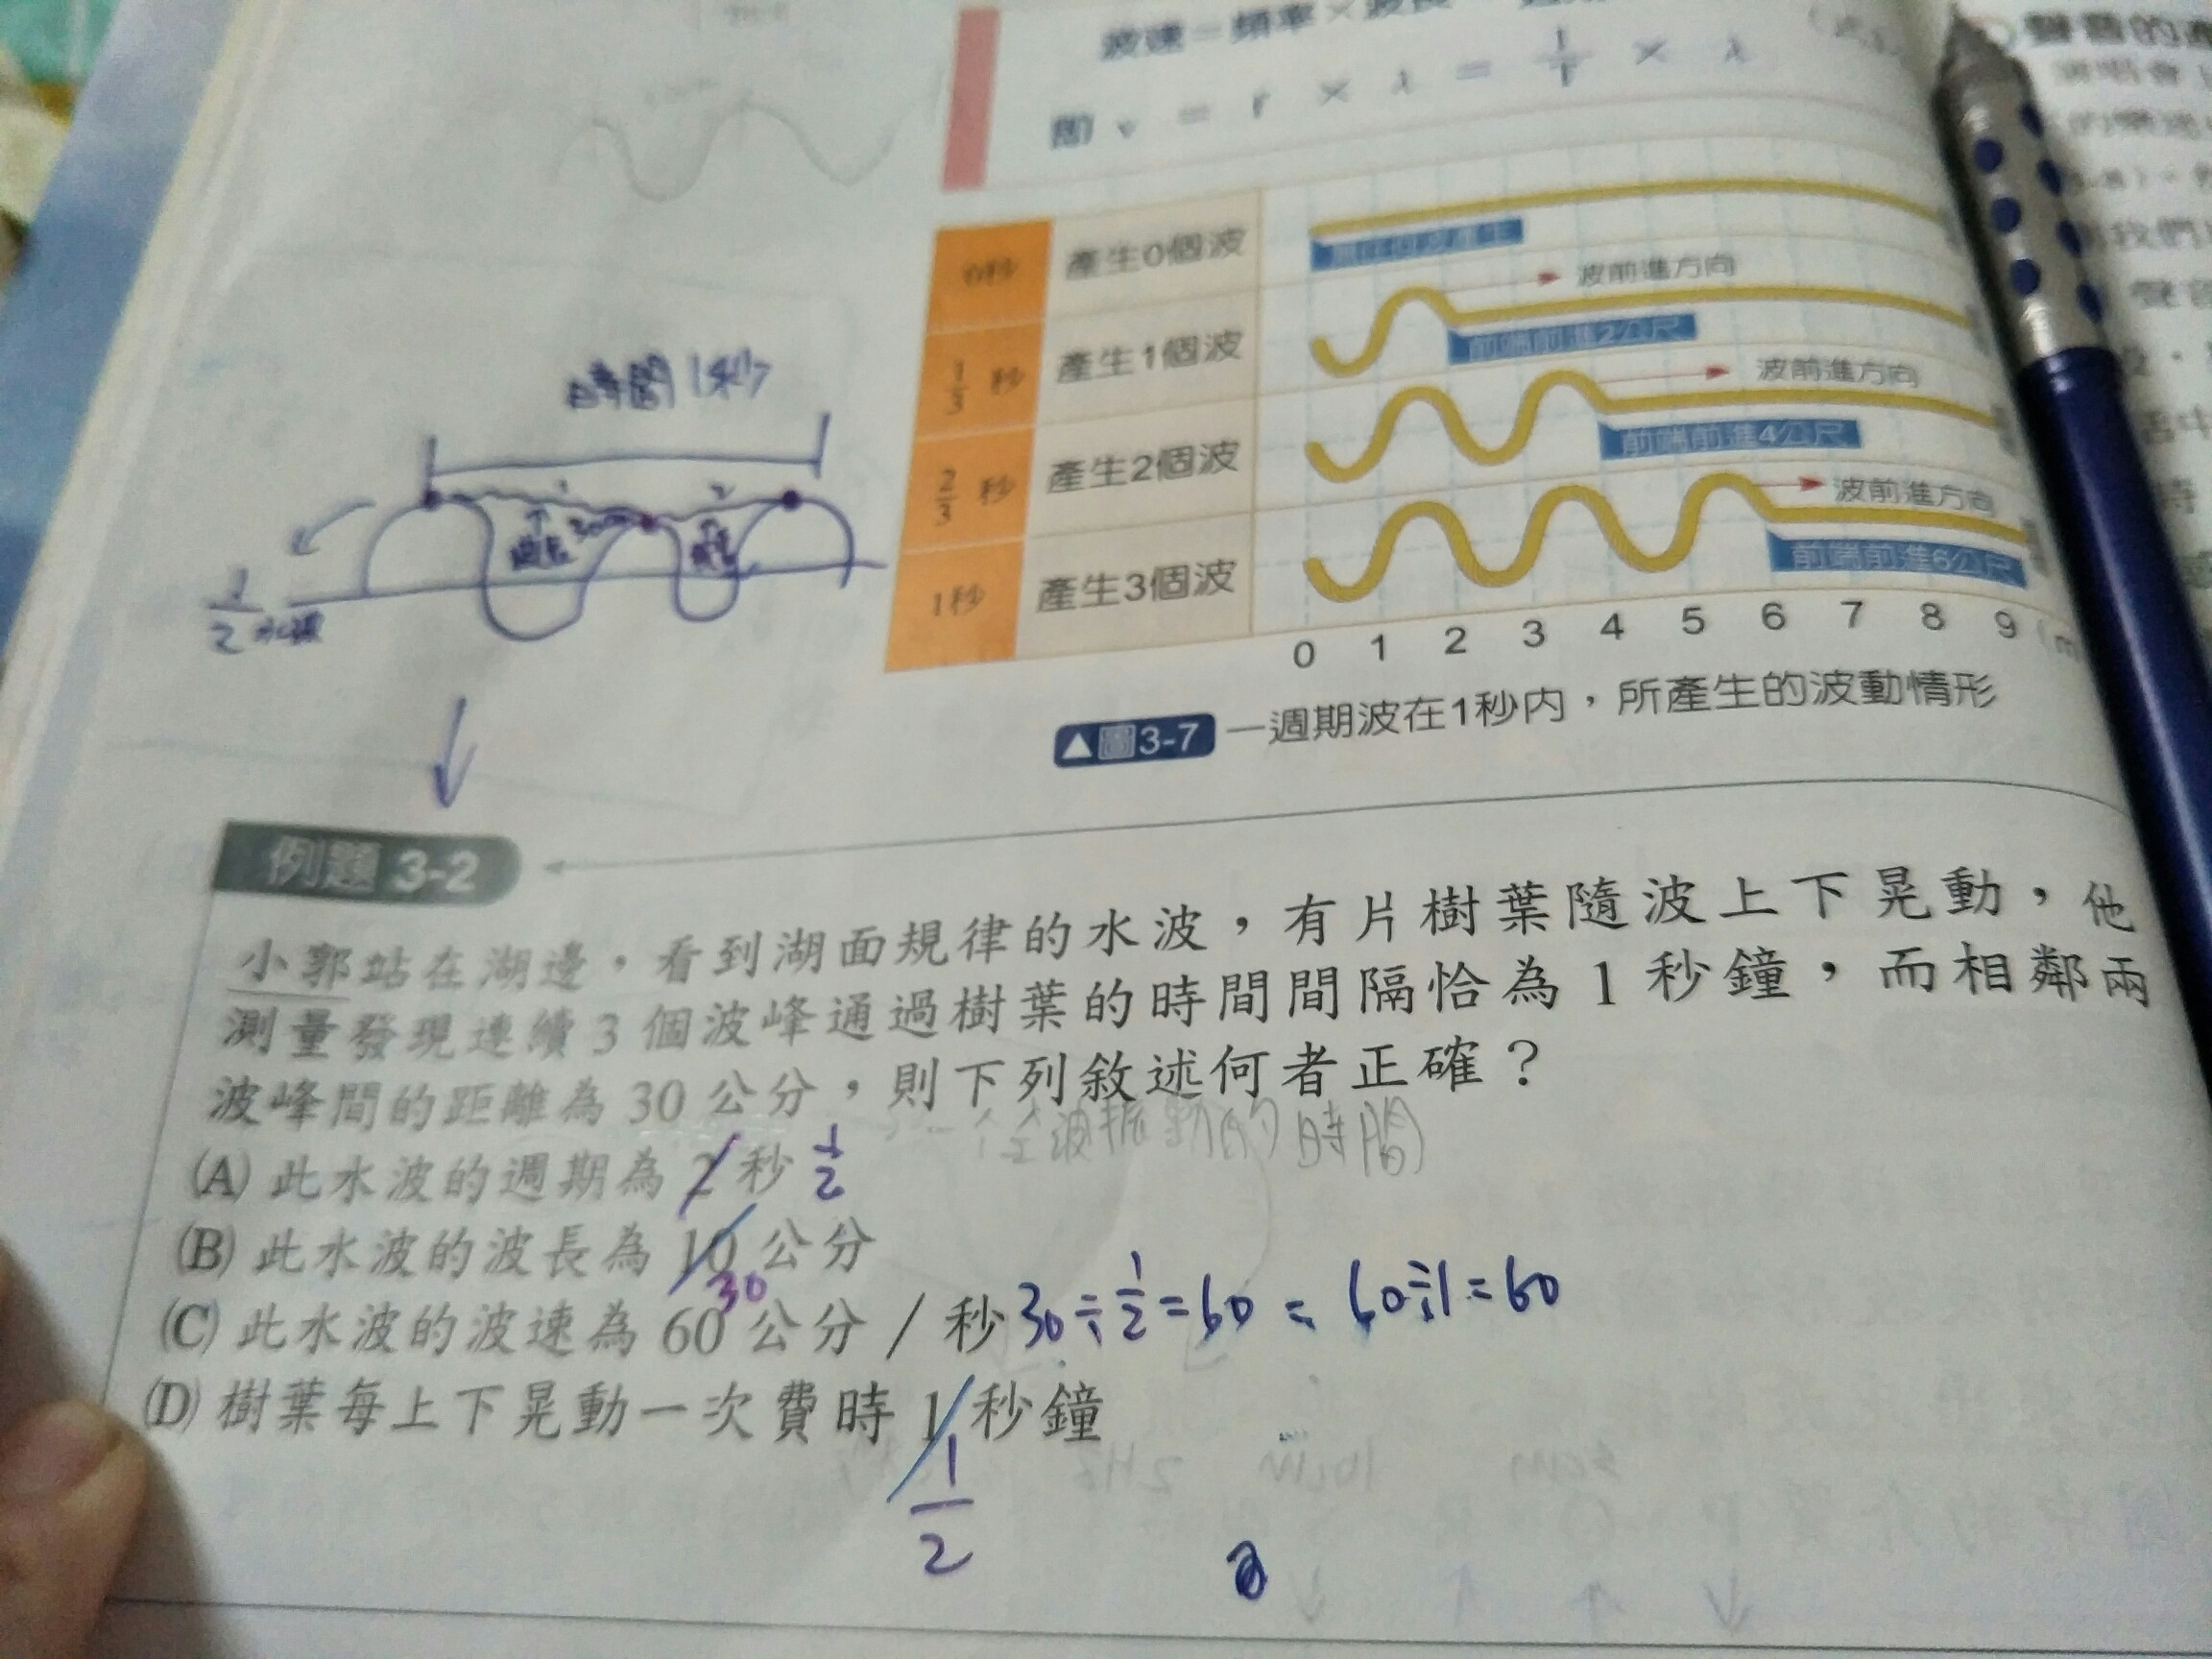 波速＝頻率×波長
即 v = f × λ = 1/T × λ
聲音的
0秒 產生0個波
波前進方向
1/3 秒 產生1個波
前端前進2公尺
波前進方向
2/3 秒 產生2個波
前端前進4公尺
波前進方向
1秒 產生3個波
前端前進6公尺
0 1 2 3 4 5 6 7 8 9 (m
▲圖3-7 一週期波在1秒內，所產生的波動情形
時間1秒
波長 30cm 波長
1/2
例題 3-2
小郭站在湖邊，看到湖面規律的水波，有片樹葉隨波上下晃動，他
測量發現連續 3 個波峰通過樹葉的時間間隔恰為 1 秒鐘，而相鄰兩
波峰間的距離為 30 公分，則下列敘述何者正確？
波振動的時間
(A) 此水波的週期為 2 秒 1/2
(B) 此水波的波長為 10 公分
30
(C) 此水波的波速為 60 公分 / 秒 30÷1/2=60 = 60÷1=60
(D) 樹葉每上下晃動一次費時 1 秒鐘
1/2